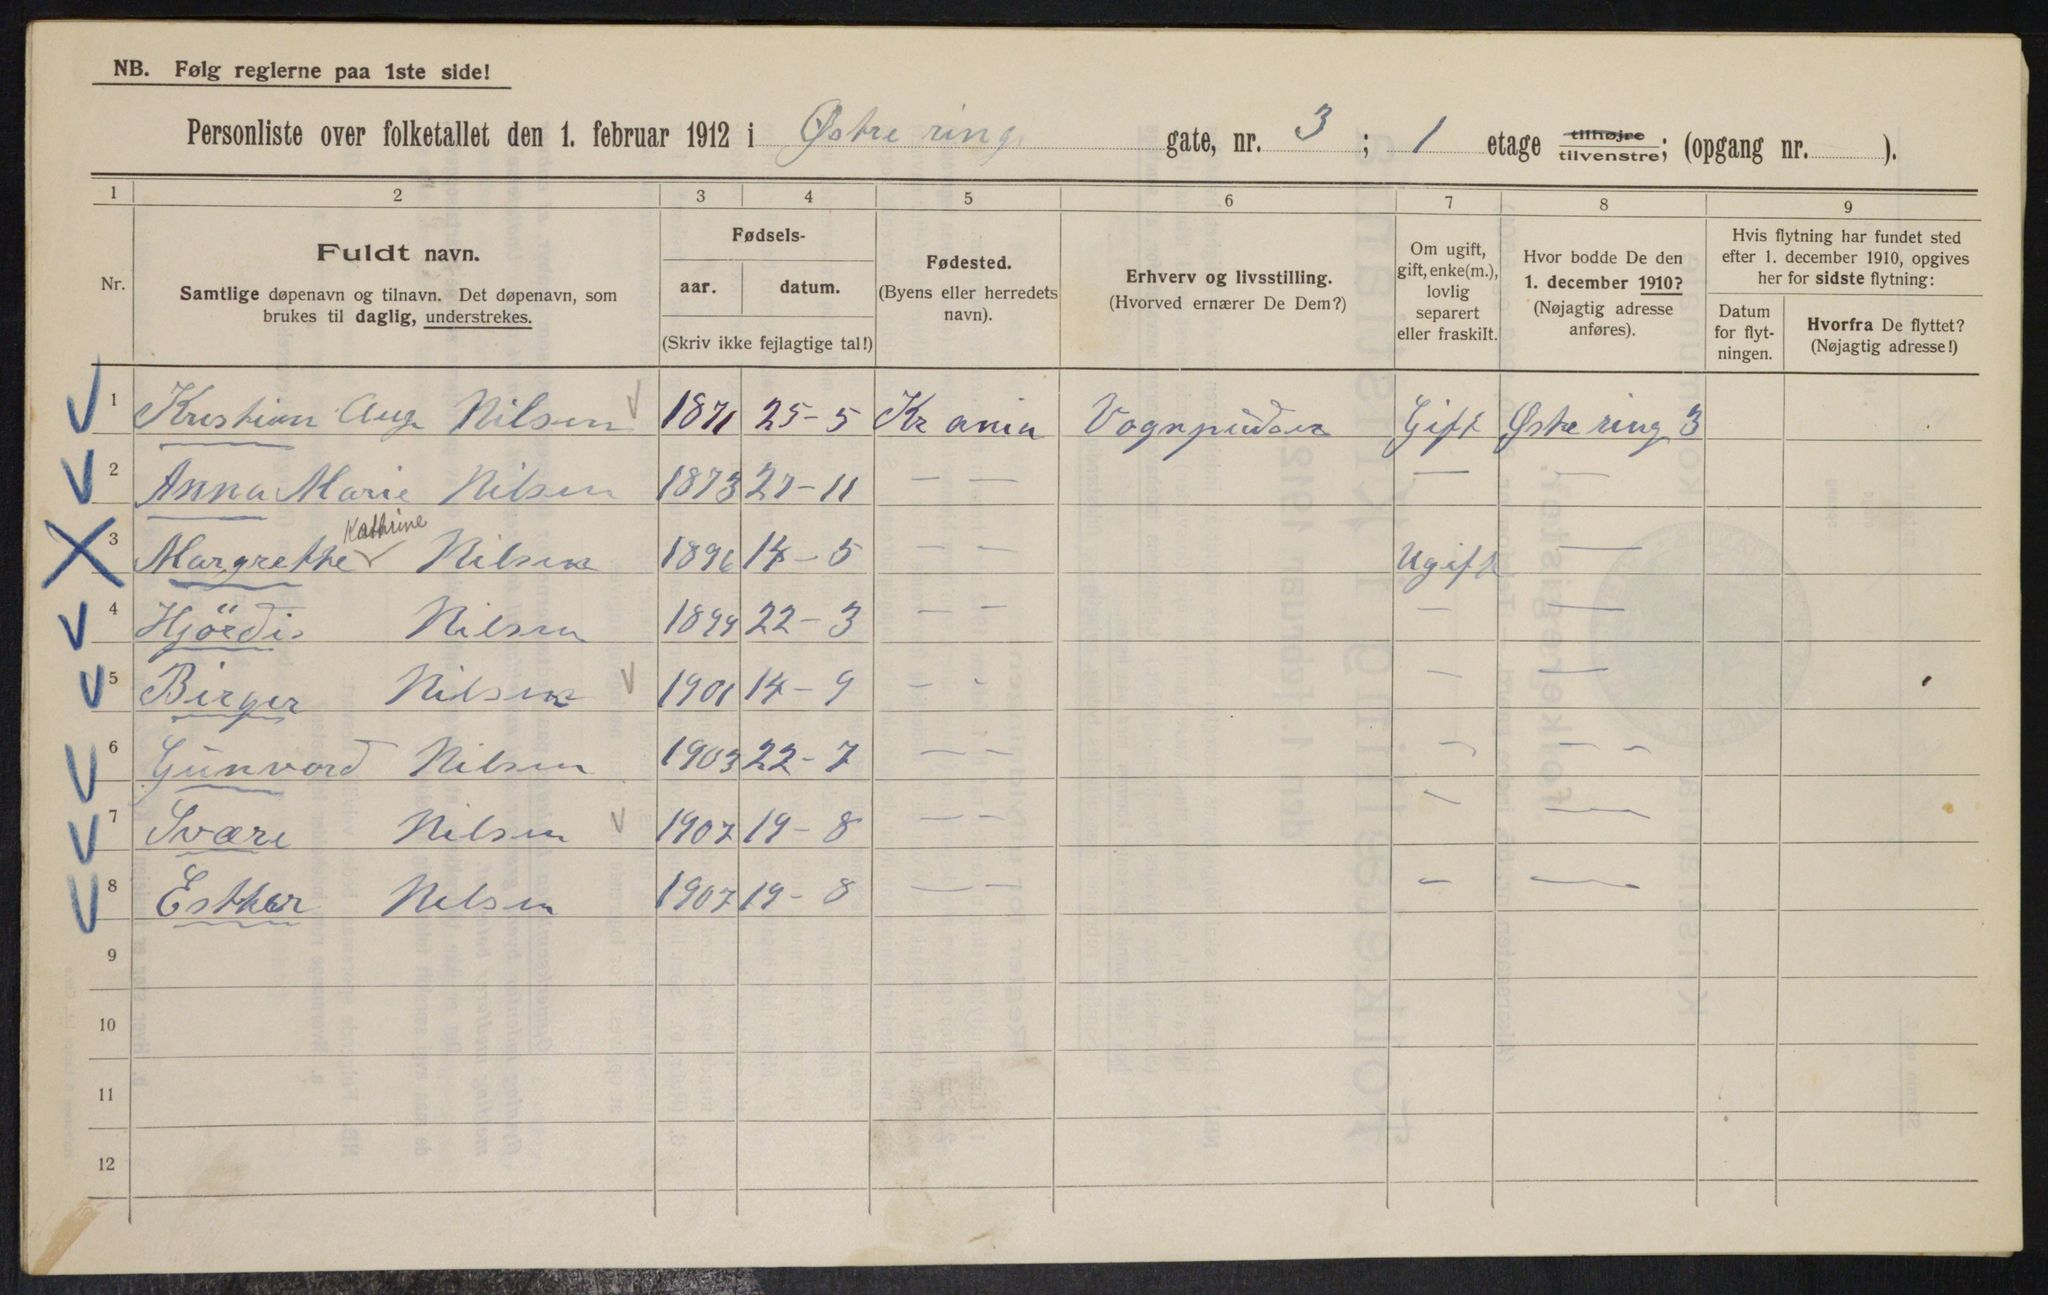 NB. Følg reglerne paa 1ste side!
Personliste over folketallet den 1. februar 1912 i Østre ring gate, nr. 3 ; 1 etage tilhøjre tilvenstre; (opgang nr. ).
1 2 3 4 5 6 7 8 9
Nr.
Fuldt navn.
Samtlige døpenavn og tilnavn. Det døpenavn, som
brukes til daglig, understrekes.
Fødsels-
aar. datum.
(Skriv ikke fejlagtige tal!)
Fødested.
(Byens eller herredets
navn).
Erhverv og livsstilling.
(Hvorved ernærer De Dem?)
Om ugift,
gift, enke(m.),
lovlig
separert
eller fraskilt.
Hvor bodde De den
1. december 1910?
(Nøjagtig adresse
anføres).
Hvis flytning har fundet sted
efter 1. december 1910, opgives
her for sidste flytning:
Datum
for flyt-
ningen.
Hvorfra De flyttet?
(Nøjagtig adresse!)
1 Kristian Aug Nilsen 1871 25-5 Kr ania Vognpudser Gift Østre ring 3
2 Anna Marie Nilsen 1873 27-11 — — — —
Kathrine
3 Margrethe Nilsen 1896 14-5 — — Ugift —
4 Hjördis Nilsen 1899 22-3 — — — —
5 Birger Nilsen 1901 14-9 — — — —
6 Gunvord Nilsen 1903 22-7 — — — — —
7 Sværi Nilsen 1907 19-8 — — — —
8 Esther Nilsen 1907 19-8 — — — —
9
10
11
12